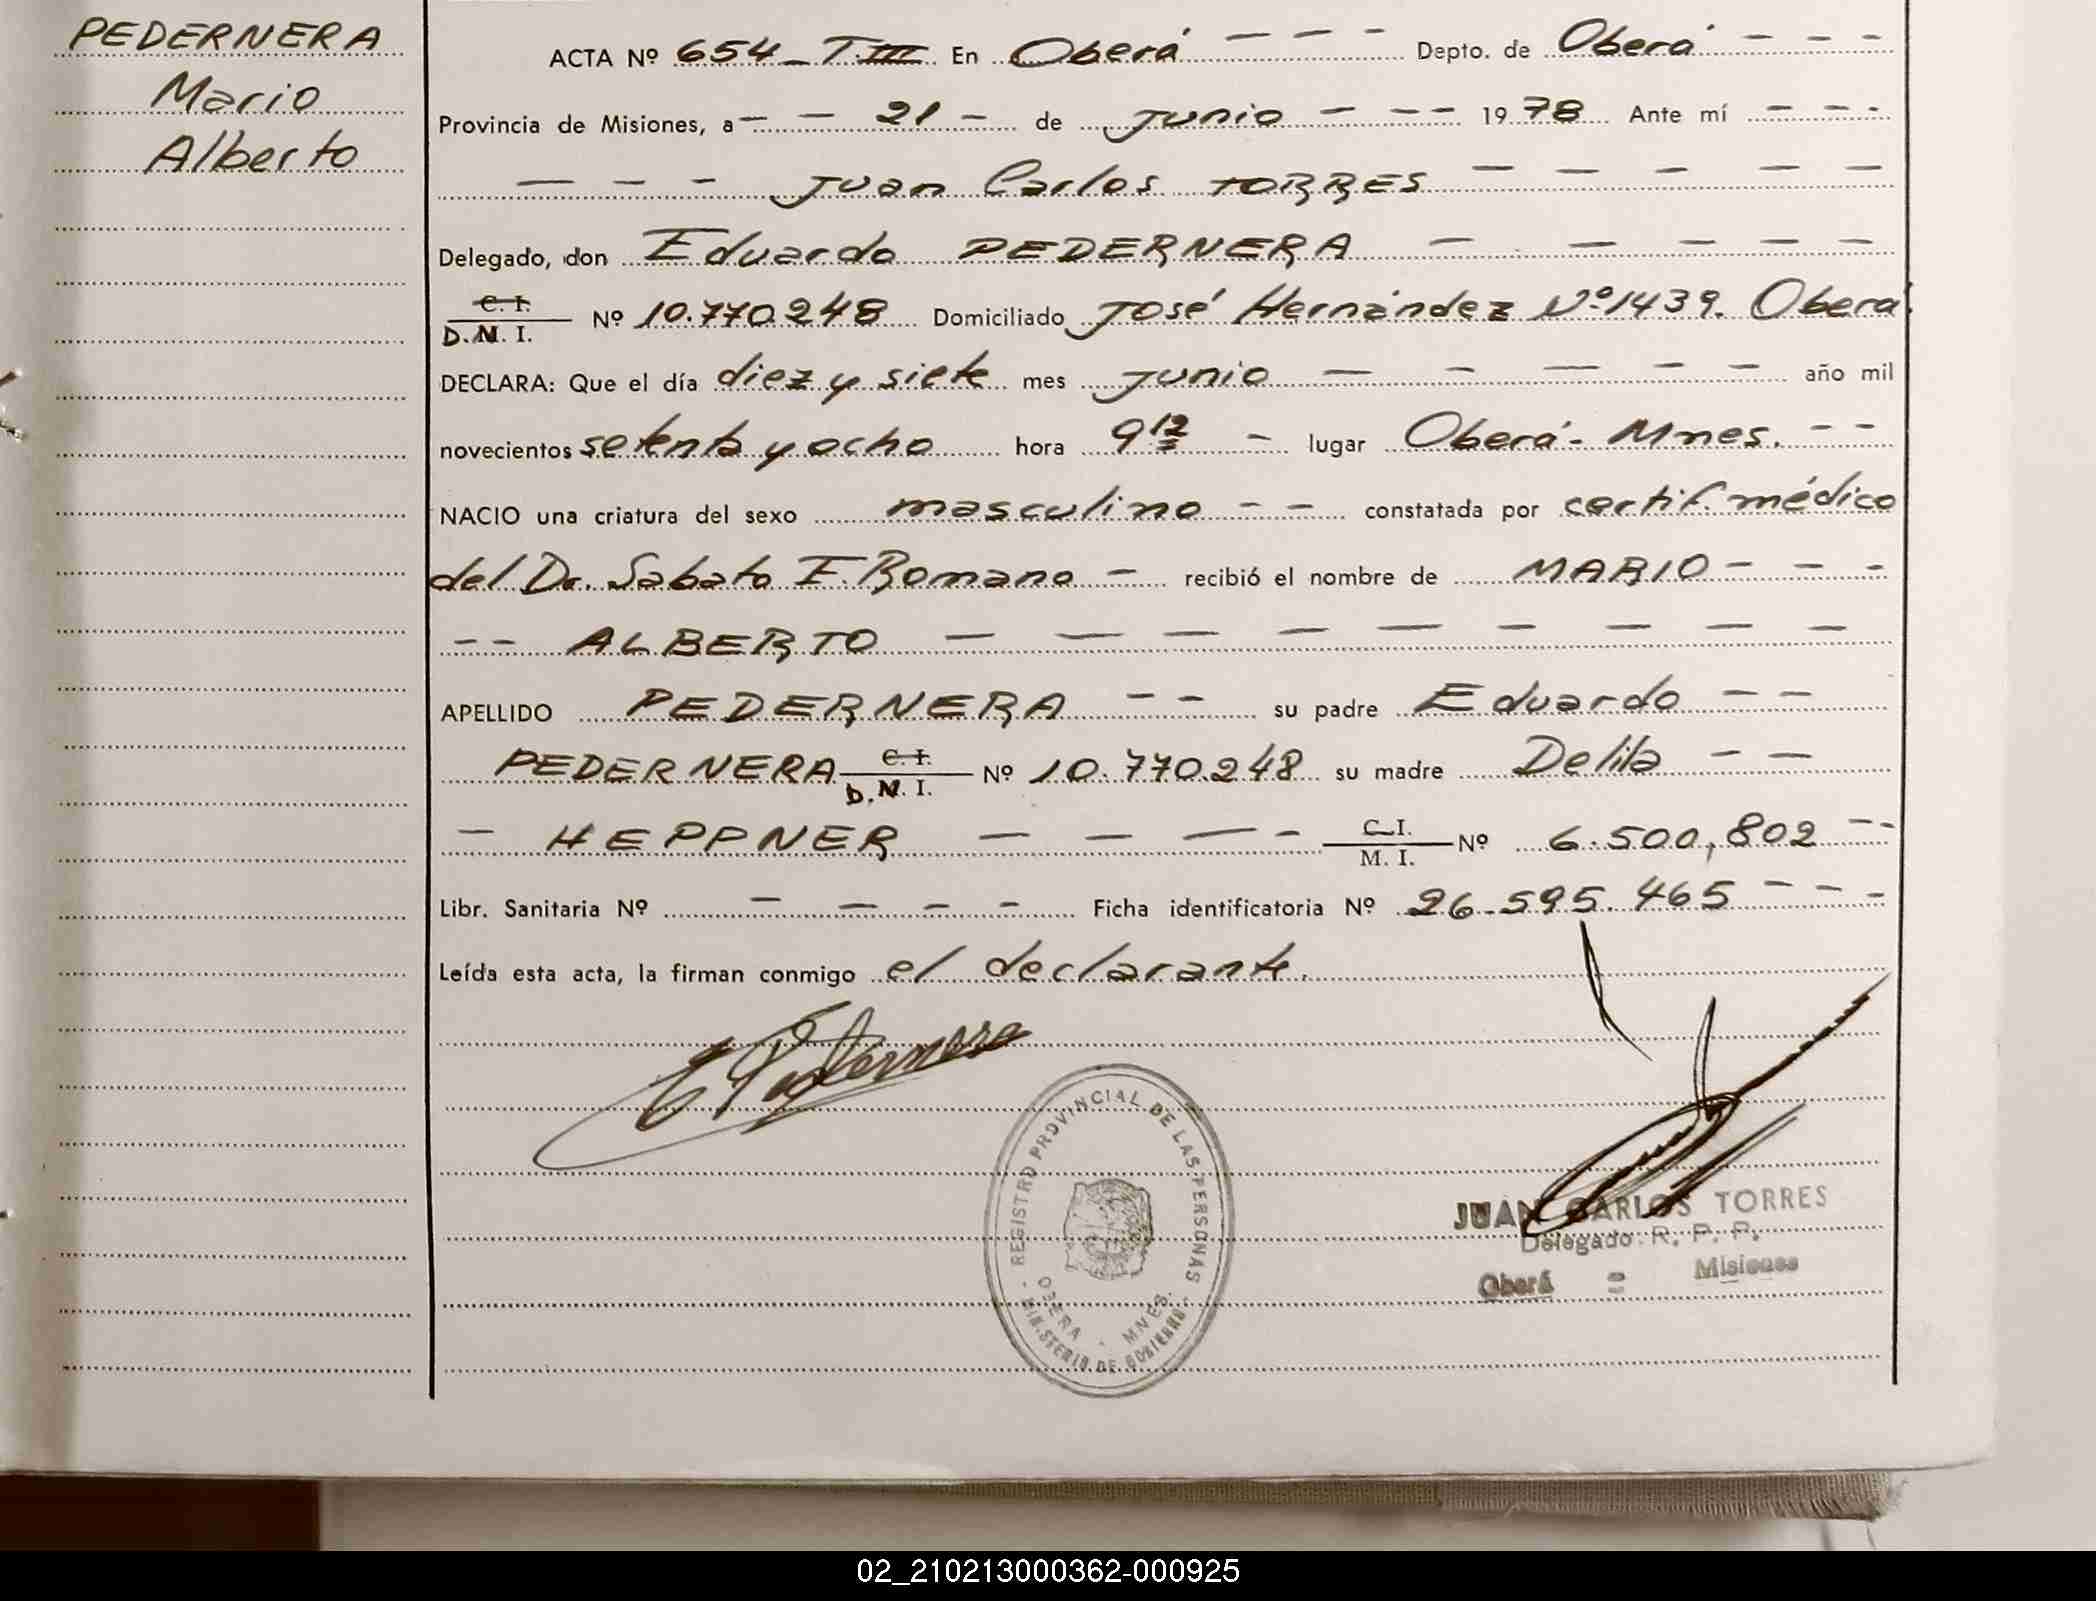 PEDERNERA
Mario
Alberto
ACTA Nº 654_T.III En Oberá - - - Depto. de Oberá - - -
Provincia de Misiones, a - - 21 - de junio - - - 1978 Ante mí - - -
- - - Juan Carlos TORRES - - - - -
Delegado, don Eduardo PEDERNERA - - - - -
C. I.
D.M. I. Nº 10.770.248 Domiciliado José Hernández Nº 1439. Oberá.
DECLARA: Que el día diez y siete mes junio - - - - - año mil
novecientos setenta y ocho hora 9 12 - lugar Oberá - Mnes. - -
NACIO una criatura del sexo masculino - - constatada por certif. médico
del Dr. Sabato F. Romano - recibió el nombre de MARIO - - -
- - ALBERTO - - - - - - - - -
APELLIDO PEDERNERA - - su padre Eduardo - -
PEDERNERA C. I.
D.M. I. Nº 10.770.248 su madre Delila - -
- HEPPNER - - - - C. I.
M. I. Nº 6.500,802 - -
Libr. Sanitaria Nº - - - - Ficha identificatoria Nº 26-595.465 - - -
Leída esta acta, la firman conmigo el declarante.
E Pedernera
REGISTRO PROVINCIAL DE LAS PERSONAS
MINISTERIO DE GOBIERNO
OBERA - MNES.
JUAN CARLOS TORRES
Delegado R. P. P.
Oberá - Misiones
02_210213000362-000925